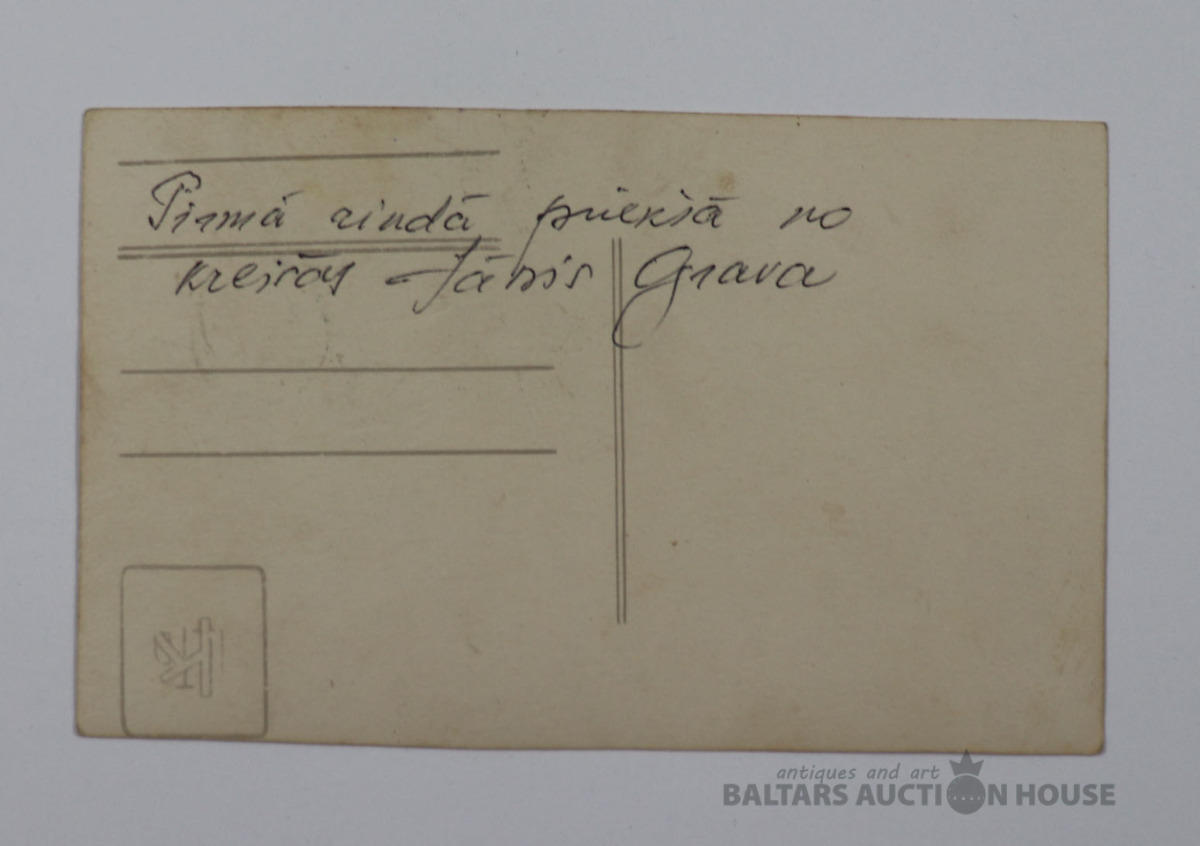 Pirmā rindā priekšā no
kreisās – Jānis Grava
antiques and art
BALTARS AUCTION HOUSE